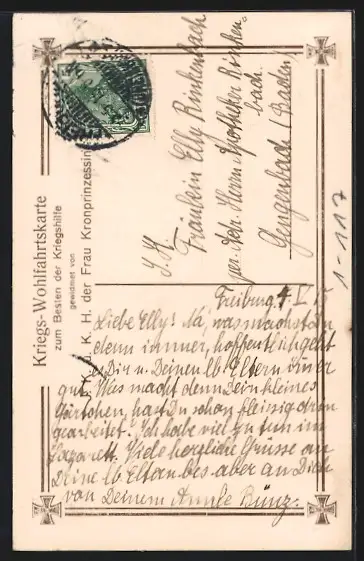 Kriegs-Wohlfahrtskarte
zum Besten der Kriegshilfe
gewidmet von
I. K. u. K. H. der Frau Kronprinzessin
S. H.
Fräulein Elly Rinkenbach
per. Adr. Herrn Apotheker Rinken
bach.
Gengenbach (Baden)
1-117
Freiburg, 4. V. 15
Liebe Elly! Na, was machst du
denn immer, hoffentlich geht
es Dir u. Deinen lb. Eltern
gut. Was macht denn Dein kleines
Gärtchen, hast Du schon fleissig drin
gearbeitet. Ich habe viel zu tun im
Lazarett. Viele herzliche Grüsse an
Deine lb. Eltern bes. aber an Dich
von Deinem Bünz.